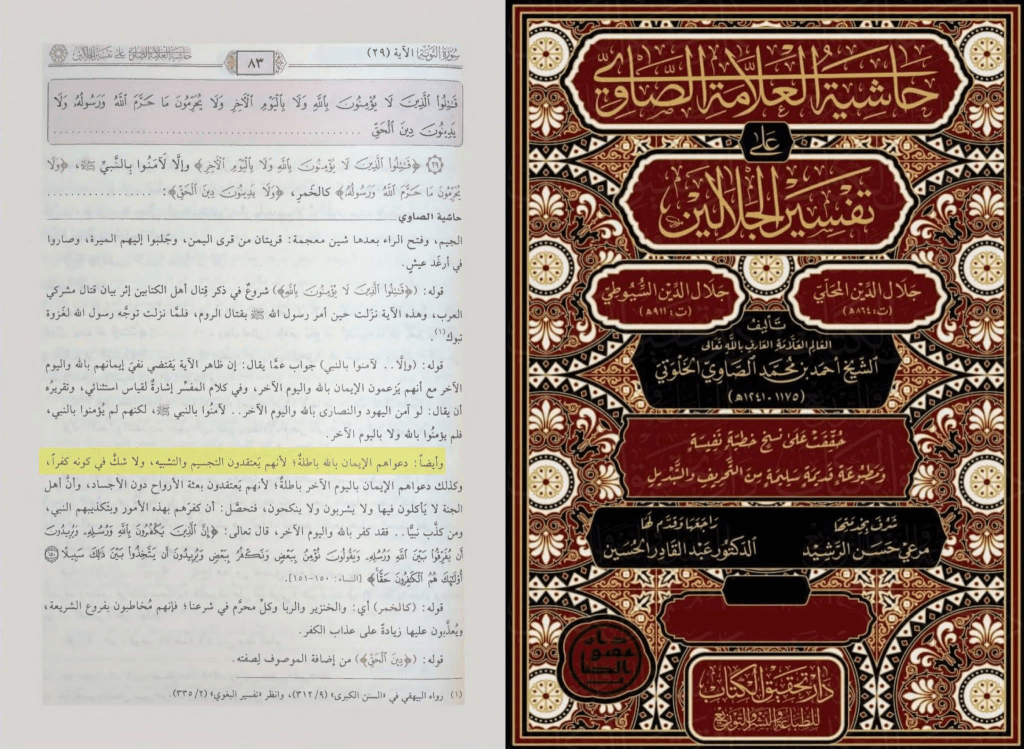 سورة التوبة / الآية (٢٩)
٨٣
حاشية العلامة الصاوي على تفسير الجلالين
قَٰتِلُوا۟ ٱلَّذِينَ لَا يُؤْمِنُونَ بِٱللَّهِ وَلَا بِٱلْيَوْمِ ٱلْءَاخِرِ وَلَا يُحَرِّمُونَ مَا حَرَّمَ ٱللَّهُ وَرَسُولُهُۥ وَلَا
يَدِينُونَ دِينَ ٱلْحَقِّ ........................................
﴿٢٩﴾ ﴿قَٰتِلُوا۟ ٱلَّذِينَ لَا يُؤْمِنُونَ بِٱللَّهِ وَلَا بِٱلْيَوْمِ ٱلْءَاخِرِ﴾ وإلَّا لآمَنُوا بِالنَّبِيِّ ﷺ، ﴿وَلَا
يُحَرِّمُونَ مَا حَرَّمَ ٱللَّهُ وَرَسُولُهُۥ﴾ كالخَمرِ، ﴿وَلَا يَدِينُونَ دِينَ ٱلْحَقِّ﴾: ....................
حاشية الصاوي
الجيم، وفتح الراء بعدها شين معجمة: قريتان من قرى اليمن، وجُلبوا إليهم الميرة، وصاروا
في أرغَد عيشٍ.
قوله: (﴿قَٰتِلُوا۟ ٱلَّذِينَ لَا يُؤْمِنُونَ بِٱللَّهِ﴾) شروعٌ في ذكر قِتال أهل الكتابين إثر بيان قتال مشركي
العرب، وهذه الآية نزَلت حين أمر رسول الله ﷺ بقتال الروم، فلمَّا نزلت توجَّه رسول الله لغَزوة
تبوك(١).
قوله: (وإلَّا.. لآمنوا بالنبي) جواب عمَّا يقال: إن ظاهر الآية يقتضي نفيَ إيمانهم بالله واليوم
الآخر مع أنهم يَزعمون الإيمان بالله واليوم الآخر، وفي كلام المفسِّر إشارةٌ لقياس استثنائي، وتقريرُه
أن يقال: لو آمن اليهود والنصارى بالله واليوم الآخر.. لآمنُوا بالنبي ﷺ، لكنهم لم يُؤمنوا بالنبي،
فلم يؤمنُوا بالله ولا باليوم الآخر.
وأيضاً: دعواهم الإيمان بالله باطلةٌ؛ لأنهم يَعتقدون التجسيم والتشبيه، ولا شكَّ في كونه كفراً،
وكذلك دعواهم الإيمان باليوم الآخر باطلةٌ؛ لأنهم يَعتقدون بعثة الأرواح دون الأجساد، وأنَّ أهل
الجنة لا يَأكلون فيها ولا يشربون ولا ينكحون، فتحصَّل: أن كفرَهم بهذه الأمور وبتكذيبهم النبي،
ومن كذَّب نبيًّا.. فقد كفر بالله واليوم الآخر، قال تعالى: ﴿إِنَّ ٱلَّذِينَ يَكْفُرُونَ بِٱللَّهِ وَرُسُلِهِۦ وَيُرِيدُونَ
أَن يُفَرِّقُوا۟ بَيْنَ ٱللَّهِ وَرُسُلِهِۦ وَيَقُولُونَ نُؤْمِنُ بِبَعْضٍ وَنَكْفُرُ بِبَعْضٍ وَيُرِيدُونَ أَن يَتَّخِذُوا۟ بَيْنَ ذَٰلِكَ سَبِيلًا ﴿١٥٠﴾
أُو۟لَٰٓئِكَ هُمُ ٱلْكَٰفِرُونَ حَقًّا﴾ [النساء: ١٥٠-١٥١].
قوله: (كالخمر) أي: والخنزير والربا وكلِّ محرَّم في شرعنا؛ فإنهم مُخاطبون بفروع الشريعة،
ويُعذَّبون عليها زيادةً على عذاب الكفر.
قوله: (﴿دِينَ ٱلْحَقِّ﴾) من إضافة الموصوف لصِفته.
(١) رواه البيهقي في «السنن الكبرى» (٣١٢/٩)، وانظر «تفسير البغوي» (٣٣٥/٢).
حاشية العلامة الصاوي
على
تفسير الجلالين
جلال الدين المحلي
(ت: ٨٦٤هـ)
جلال الدين السيوطي
(ت: ٩١١هـ)
تأليف
العالم العلامة العارف بالله تعالى
الشيخ أحمد بن محمد الصاوي الخلوتي
(١١٧٥-١٢٤١هـ)
حققت على نسخ خطية نفيسة
ومطبوعة قديمة سليمة من التحريف والتبديل
تشرف بخدمتها
مرعي حسن الرشيد
راجعها وقدم لها
الدكتور عبد القادر الحسين
دار تحقيق الكتاب
للطباعة والنشر والتوزيع